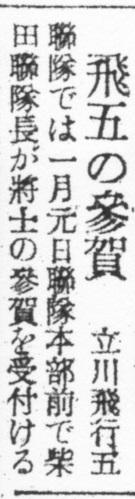 飛五の參賀
立川飛行五
聯隊では一月元日聯隊本部前で柴
田聯隊長が將士の參賀を受付ける